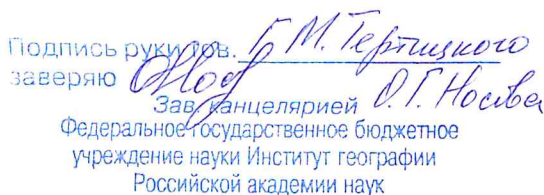 Подпись руки тов. Г. М. Тертицкого
заверяю
Зав. канцелярией О. Г. Носова
Федеральное государственное бюджетное
учреждение науки Институт географии
Российской академии наук